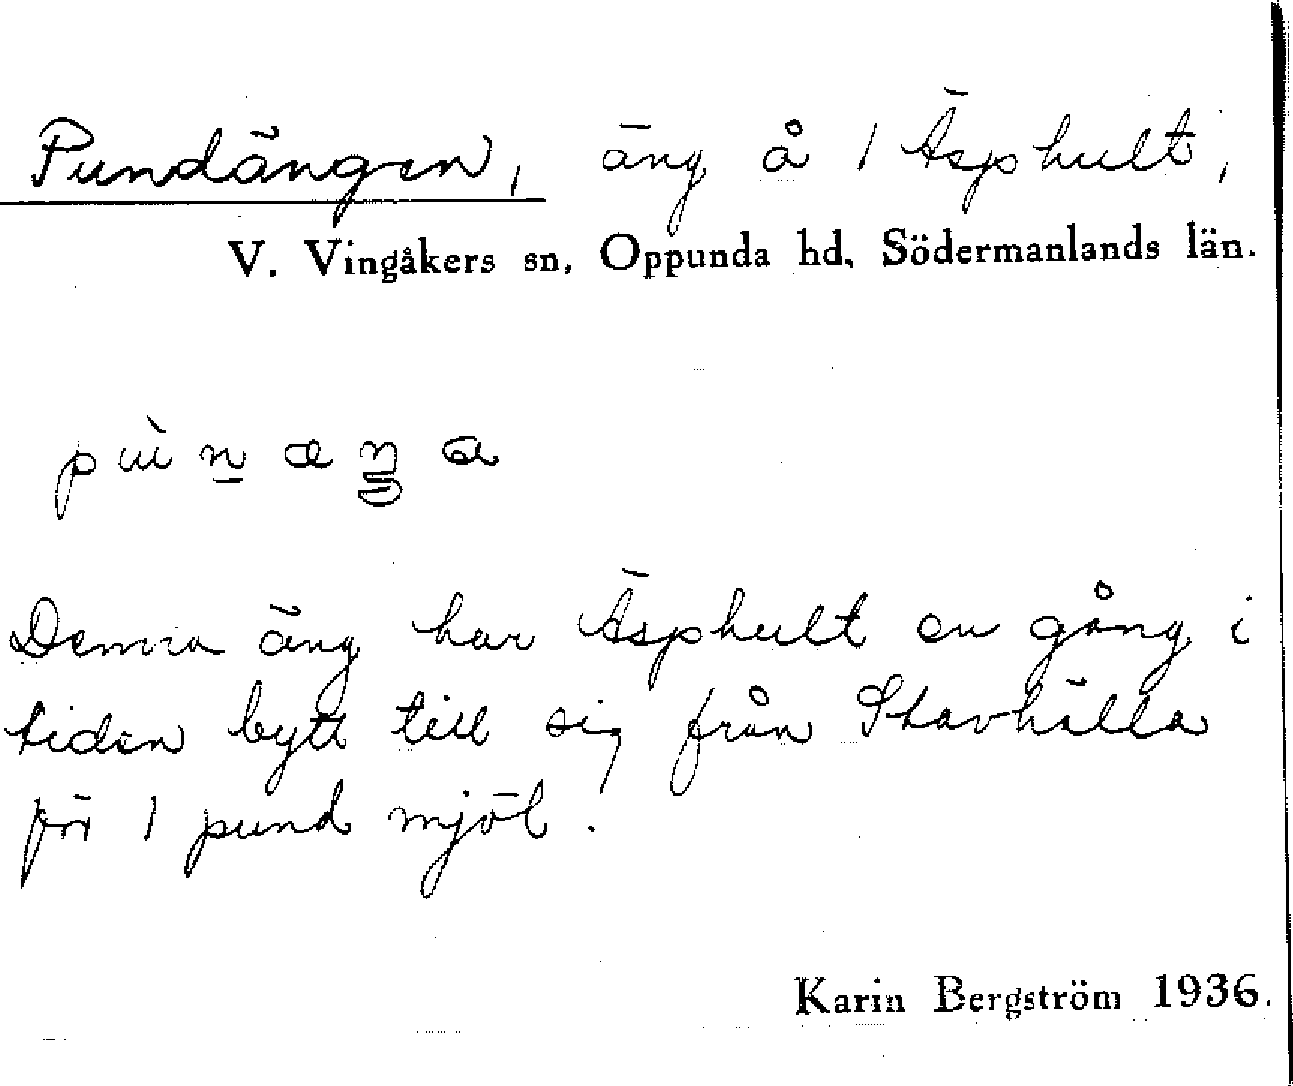 Pundängen, äng å 1 Äsphult,
V. Vingåkers sn, Oppunda hd, Södermanlands län.
Denna äng har Äsphult en gång i
tiden bytt till sig från Stavhälla
för 1 pund mjöl.
Karin Bergström 1936.